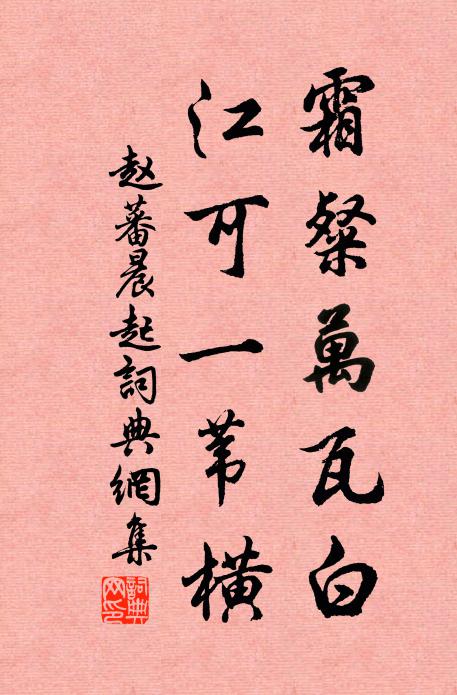 霜粲萬瓦白
江可一苇橫
赵蕃晨起詞典網集
詞典网印